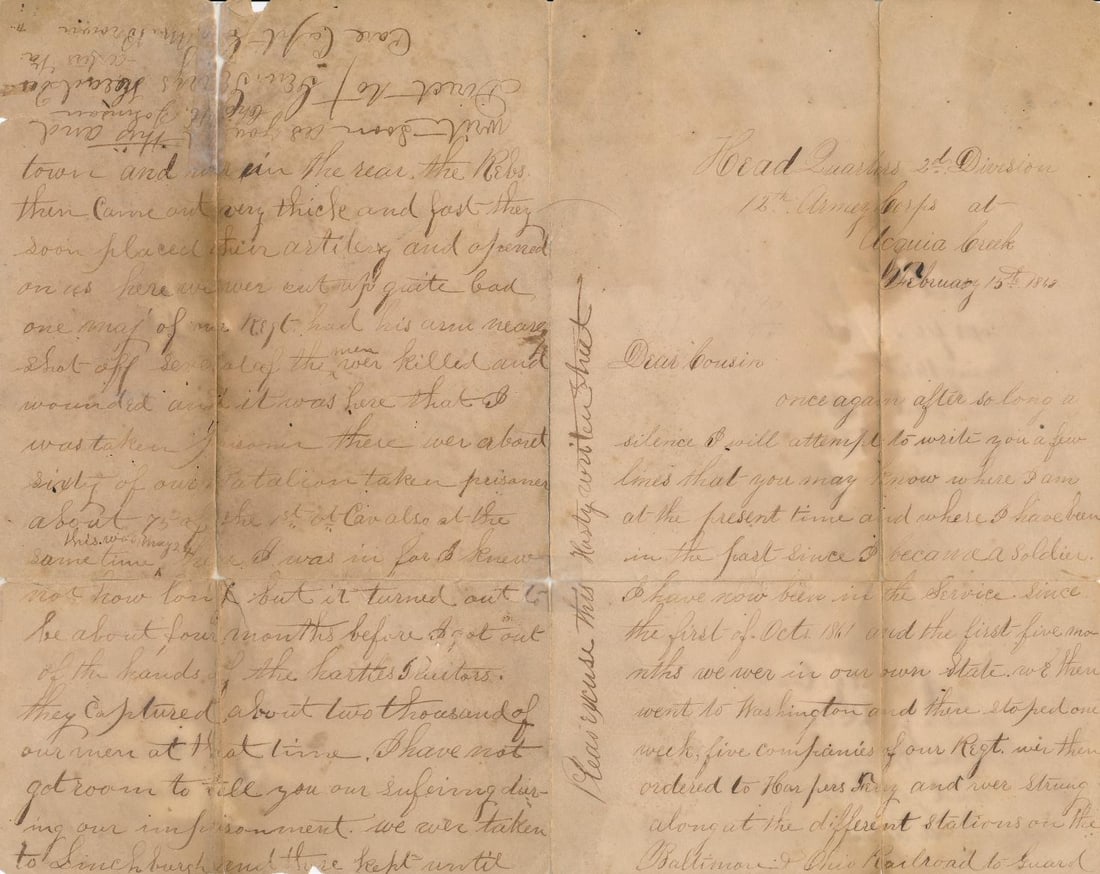 Head Quarters 2d Division
12th Army Corps at
Acquia Creek
February 15th 186
Dear Cousin
once again after so long a
silence I will attempt to write you a few
lines that you may know where I am
at the present time and where I have been
in the past since I became a soldier.
I have now been in the Service since
the first of Octs 1861 and the first five mo
nths we wer in our own State. we then
went to Washington and there stoped one
week, five companies of our Regt. wer then
ordered to Harpers Ferry and wer strung
along at the different stations on the
Baltimore & Ohio Railroad to guard
Pleas excuse this Hasty written sheet
town and in the rear. the Rebs.
then Came out very thick and fast they
soon placed their artilery and opened
on us here we wer cut up quite bad
one maj of our Regt. had his arm nearly
shot off several of the men wer killed and
wounded and it was here that I
was taken prisoner there wer about
sixty of our Batalion taken prisoner
about 75 of the 1st Vt Cav also at the
same time this was may 24 I was in for I knew
not how long but it turned out to
be about four months before I got out
of the hands of the hartles Traitors.
they captured about two thousand of
our men at that time. I have not
got room to tell you our sufering dur-
ing our imprisonment. we wer taken
to Linchburgh and there kept until
write soon as you
this and
Direct to
Care Capt